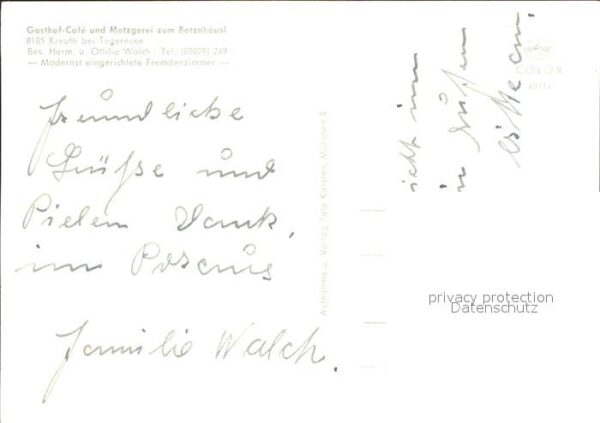 Gasthof-Café und Metzgerei zum Batznhäusl
8185 Kreuth bei Tegernsee
Bes. Herm. u. Ottilie Walch - Tel. (08029) 249
— Modernst eingerichtete Fremdenzimmer —
freundliche
Grüße und
Vielen Dank,
im Voraus
Familie Walch.
Aufnahme u. Verlag Foto Karsten, München-S
COLOR
in rufen
bitte
privacy protection
Datenschutz